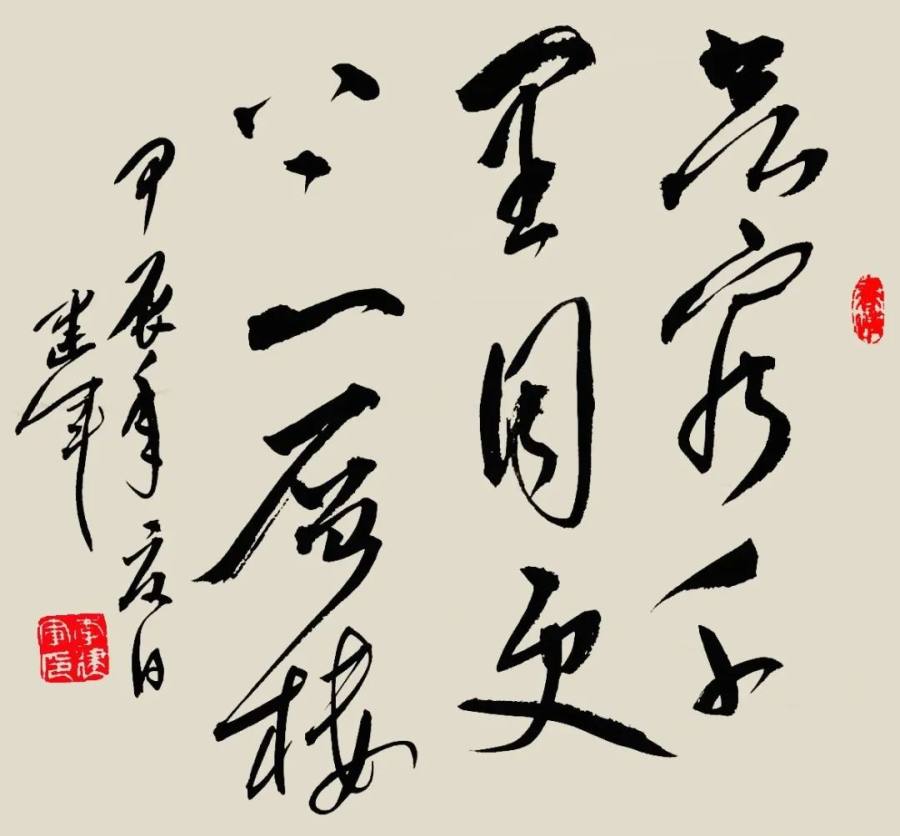 欲窮千
里目更
上一層樓
甲辰年夏日
建军
李建军印